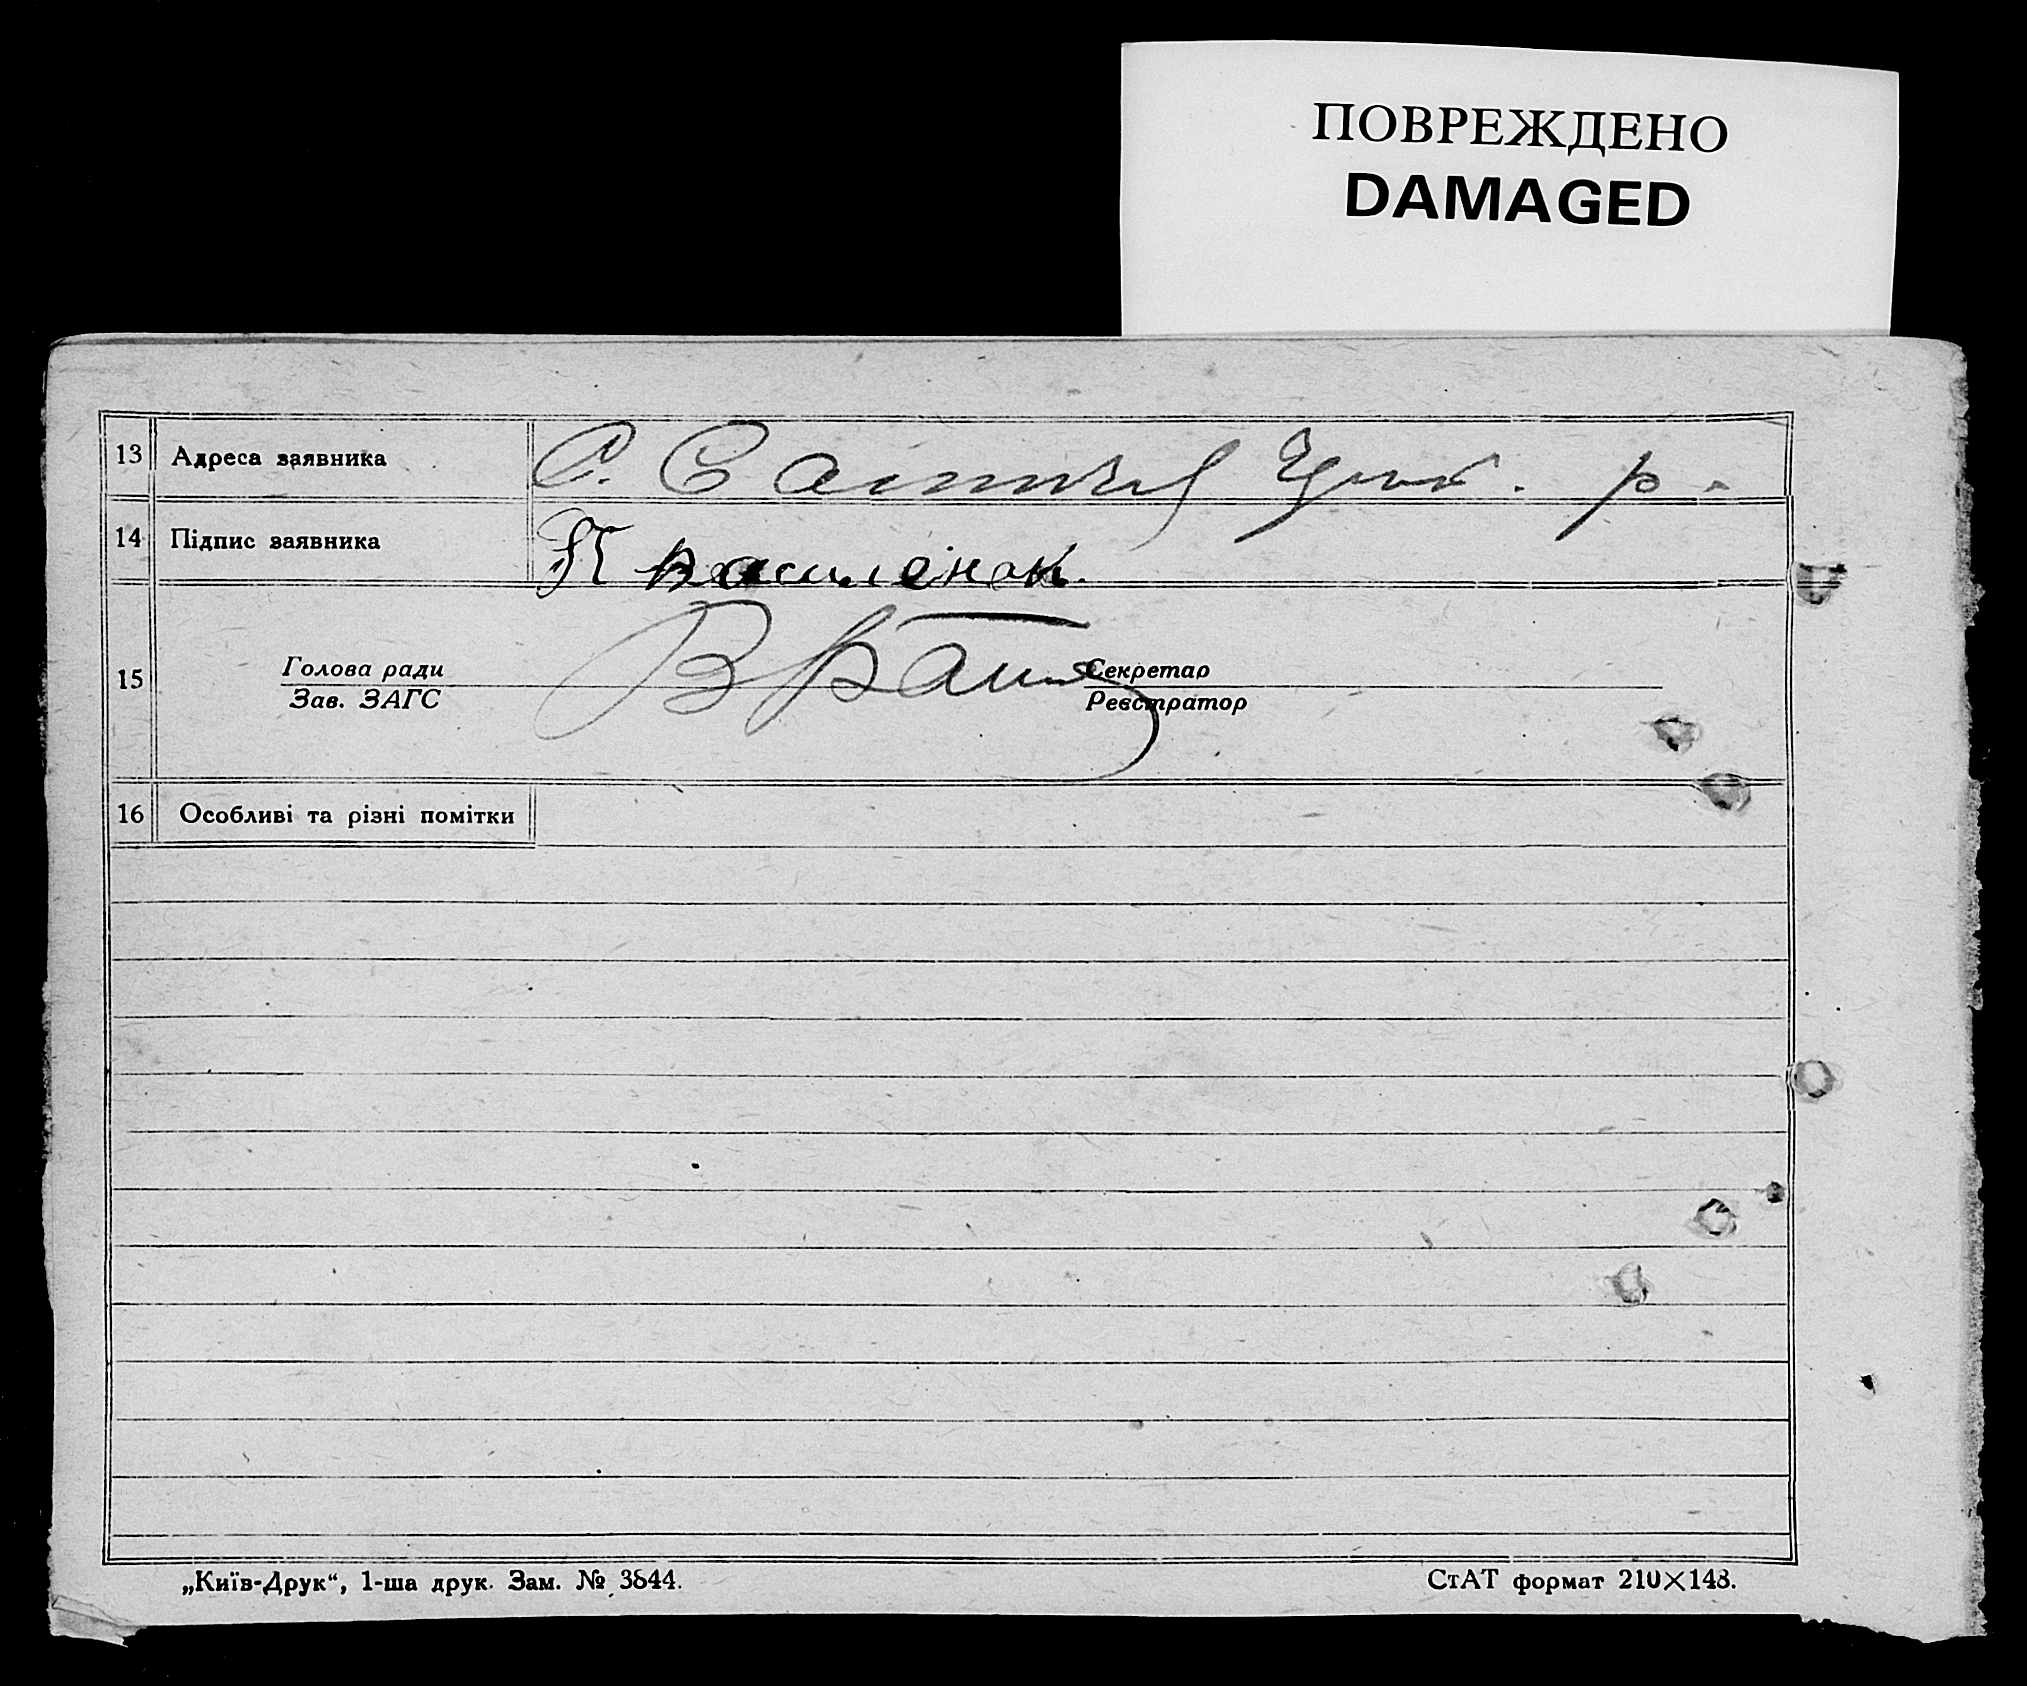 ПОВРЕЖДЕНО
DAMAGED
13 Адреса заявника С. р.
14 Підпис заявника
15 Голова ради Секретар
Зав. ЗАГС Реєстратор
16 Особливі та різні помітки
„Київ-Друк“, 1-ша друк. Зам. № 3844. СтАТ формат 210×148.